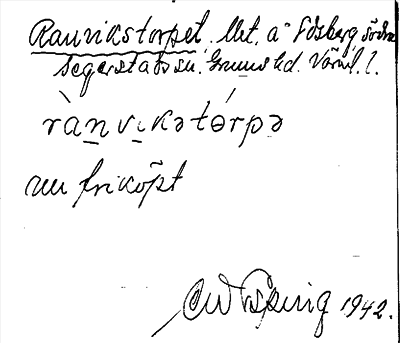 Ranvikstorpet. Uvt. å Edsberg, södra
Segerstads sn. Grums hd. Värml. l.
rànvikətórpə
nu friköpt
1942.